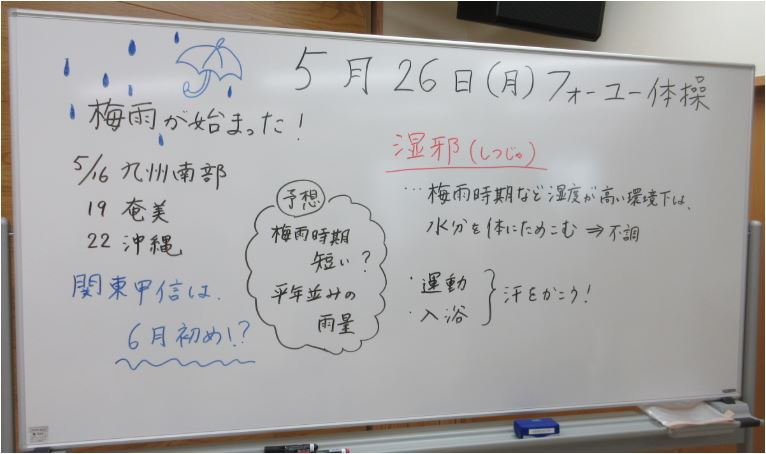 5月26日(月)フォーユー体操
梅雨が始まった!
5/16 九州南部
19 奄美
22 沖縄
関東甲信は、
6月初め!?
予想
梅雨時期
短い?
平年並みの
雨量
湿邪(しつじゃ)
…梅雨時期など湿度が高い環境下は、
水分を体にためこむ⇒不調
・運動
・入浴
汗をかこう!